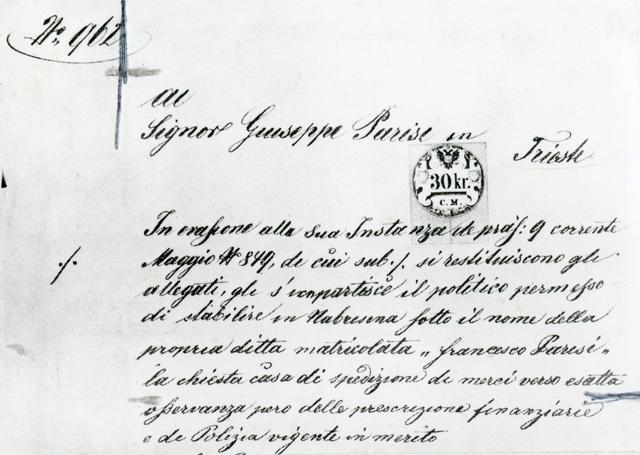 No. 962
Al
Signor Giuseppe Parise in
Trieste
30 kr.
C. M.
In evasione alla sua Instanza de präs: 9 corrente
./. Maggio N 849, di cui sub ./. si restituiscono gli
allegati, gli s'impartisce il politico permesso
di stabilire in Nabresina sotto il nome della
propria ditta matricolata „ Francesco Parisi „
la chiesta casa di spedizione di merci verso esatta
osservanza però delle prescrizione finanziarie
e di Polizia vigente in merito